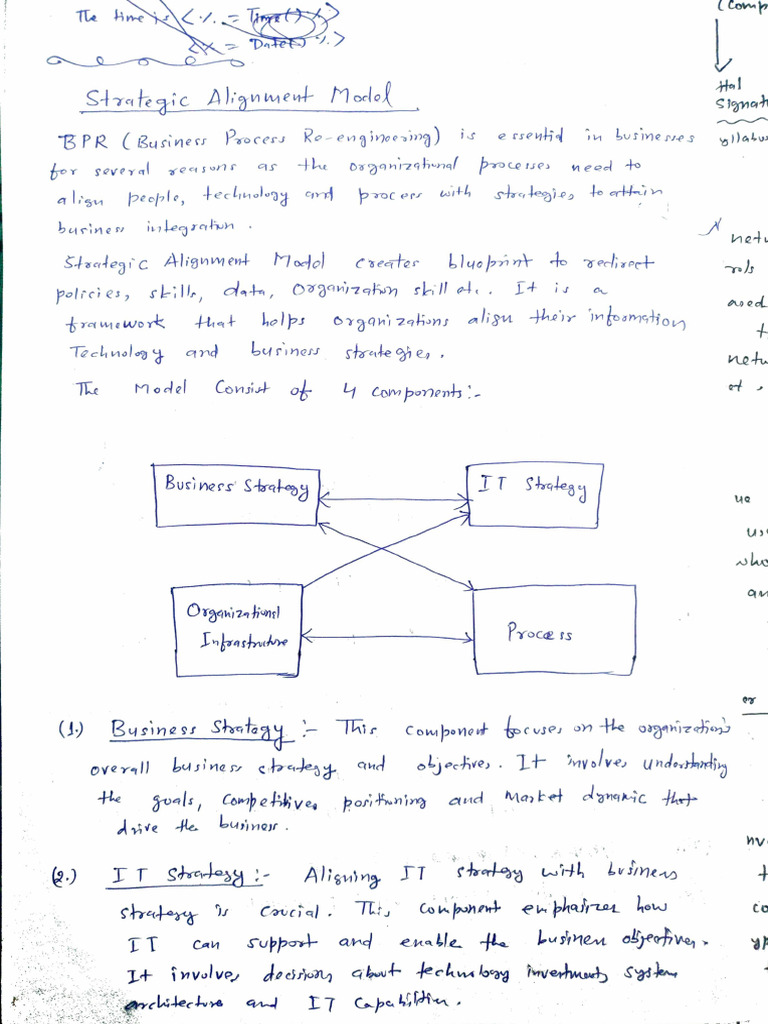 The time is <%= Time() %>
<%= Date() %>
Strategic Alignment Model
BPR (Business Process Re-engineering) is essential in businesses
for several reasons as the organizational processes need to
align people, technology and process with strategies, to attain
business integration.
Strategic Alignment Model creates blueprint to redirect
policies, skills, data, Organization skill etc. It is a
framework that helps organizations align their information
Technology and business strategies.
The Model Consist of 4 components:-
Business Strategy
IT Strategy
Organizational
Infrastructure
Process
(1.) Business Strategy :- This component focuses on the organization's
overall business strategy and objectives. It involves understanding
the goals, competitive positioning and market dynamic that
drive the business.
(2.) IT Strategy :- Aligning IT strategy with business
strategy is crucial. This component emphasizes how
IT can support and enable the business objectives.
It involves decisions about technology investments, system
architecture and IT capabilities.
(comp
Hal
Signat
yllabus
netw
rols
ased
t
netw
et,
ue
us
who
an
or
nv
t
co
yp
t